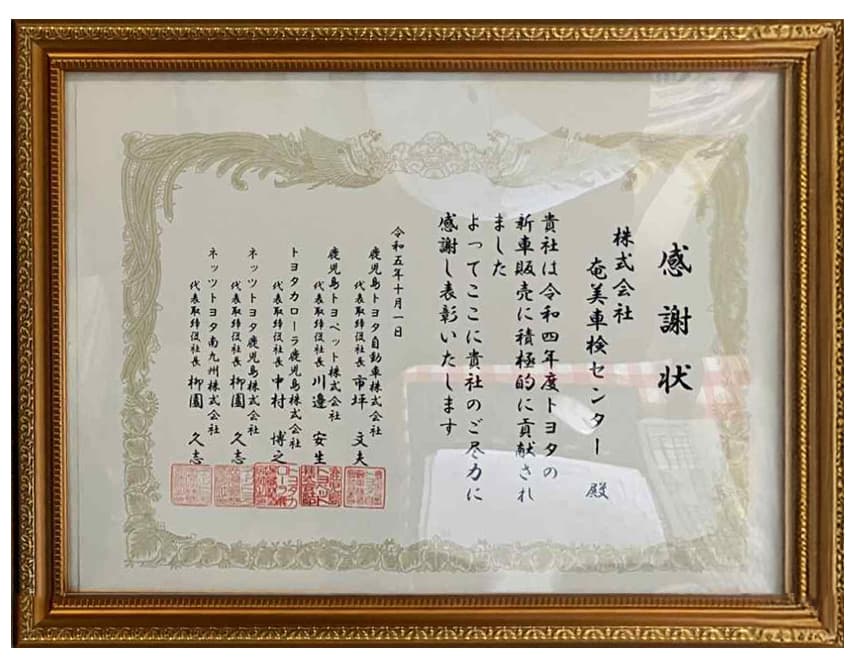 感謝状
株式会社
奄美車検センター 殿
貴社は令和四年度トヨタの
新車販売に積極的に貢献され
ました
よってここに貴社のご尽力に
感謝し表彰いたします
令和五年十月一日
鹿児島トヨタ自動車株式会社
代表取締役社長 市坪 文夫
鹿児島トヨペット株式会社
代表取締役社長 川邉 安生
トヨタカローラ鹿児島株式会社
代表取締役社長 中村 博之
ネッツトヨタ鹿児島株式会社
代表取締役社長 柳園 久志
ネッツトヨタ南九州株式会社
代表取締役社長 柳園 久志